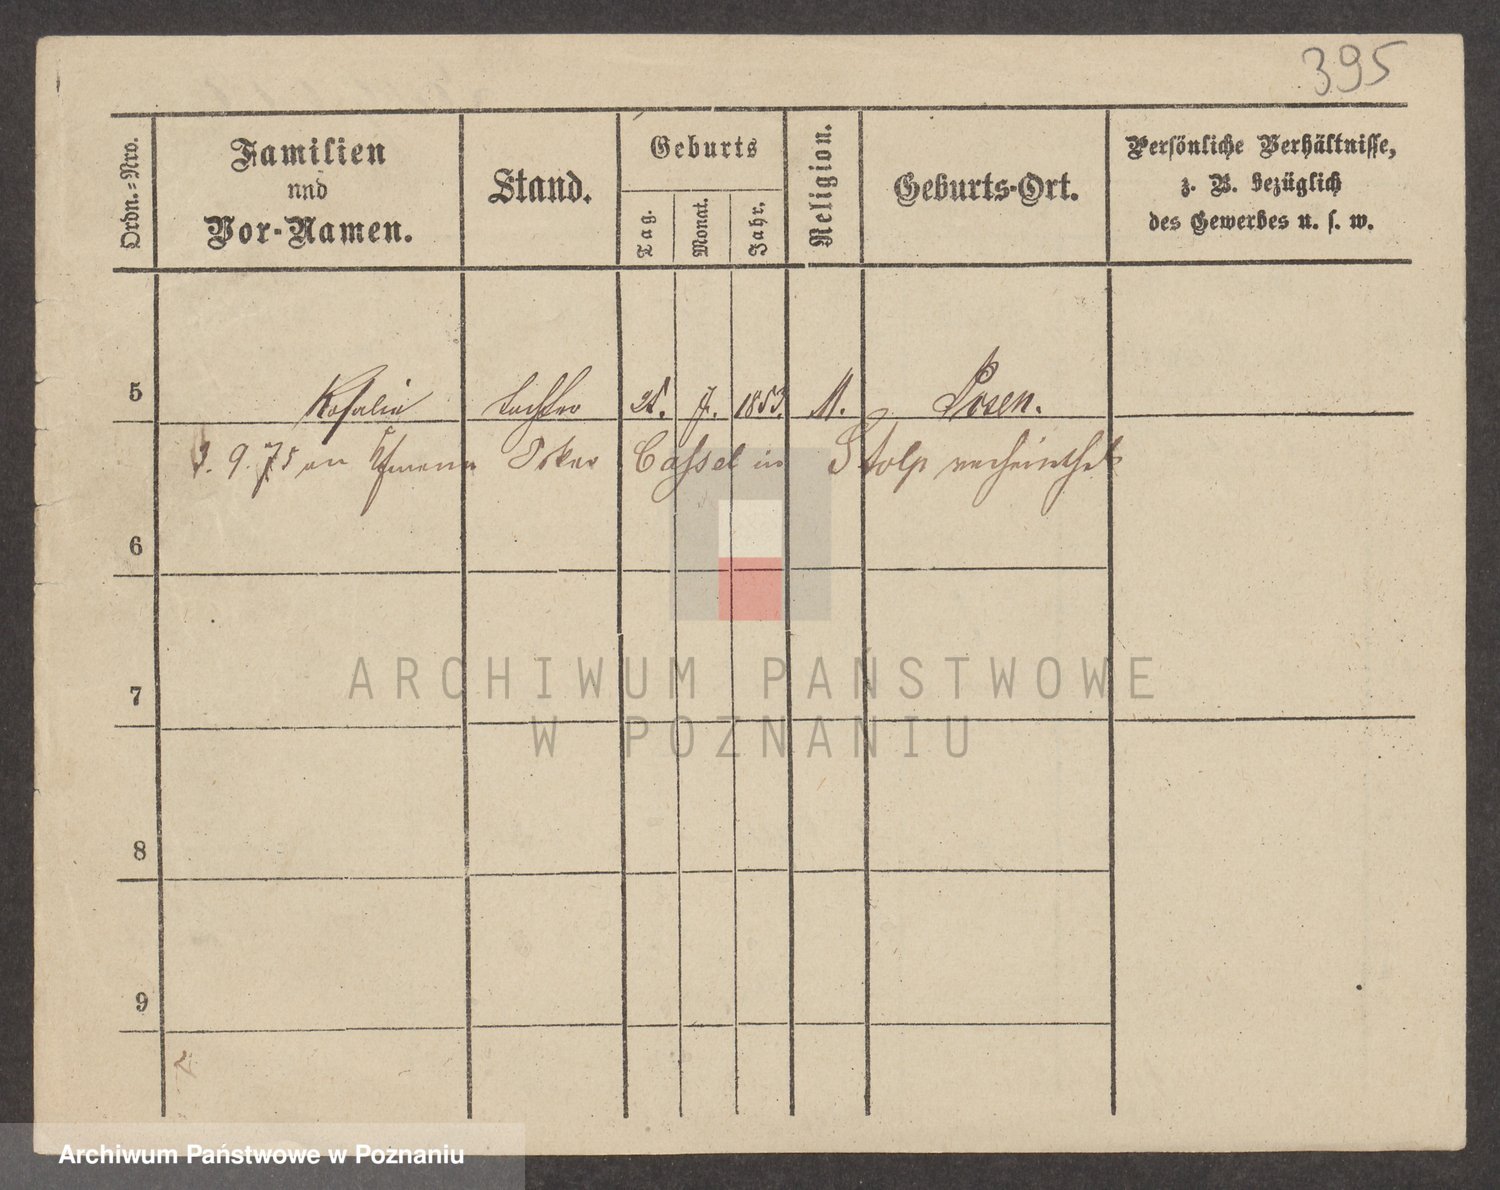 395
Ordn.-Nro.
Familien
und
Vor-Namen.
Stand.
Geburts
Tag.
Monat.
Jahr.
Religion.
Geburts-Ort.
Persönliche Verhältnisse,
z. B. bezüglich
des Gewerbes u. s. w.
5 Rosalie Tochter 25. 7. 1853. M. Posen.
9. 75 an Kfmann Oskar Cassel in Stolp verheirathet
6
7
8
9
ARCHIWUM PAŃSTWOWE
W POZNANIU
Archiwum Państwowe w Poznaniu